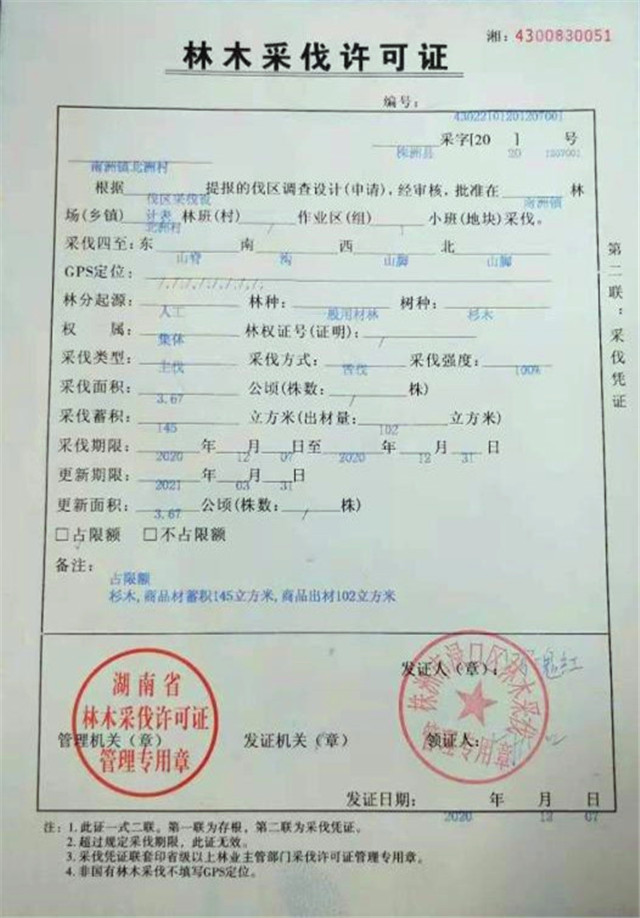 湘：4300830051
林木采伐许可证
编号：43022101201207001
株洲县采字[20 20 ] 1207001号
南洲镇北洲村
根据伐区采伐设计表提报的伐区调查设计(申请)，经审核，批准在南洲镇林
场(乡镇)北洲村林班(村)/作业区(组)/小班(地块)采伐。
采伐四至：东山脊南沟西山脚北山脚
GPS定位：/./././././././
林分起源：人工 林种：一般用材林 树种：杉木
权 属：集体 林权证号(证明)：/
采伐类型：主伐 采伐方式：皆伐 采伐强度：100%
采伐面积：3.67公顷(株数：/株)
采伐蓄积：145立方米(出材量：102立方米)
采伐期限：2020年12月07日至2020年12月31日
更新期限：2021年03月31日
更新面积：3.67公顷(株数：/株)
□占限额 □不占限额
备注：
占限额
杉木,商品材蓄积145立方米,商品出材102立方米
第二联：采伐凭证
湖南省
林木采伐许可证
管理专用章
管理机关（章）
发证机关（章）
发证人（章）：
领证人：
发证日期：2020年12月07日
注：1.此证一式二联。第一联为存根，第二联为采伐凭证。
2.超过规定采伐期限，此证无效。
3.采伐凭证联套印省级以上林业主管部门采伐许可证管理专用章。
4.非国有林木采伐不填写GPS定位。